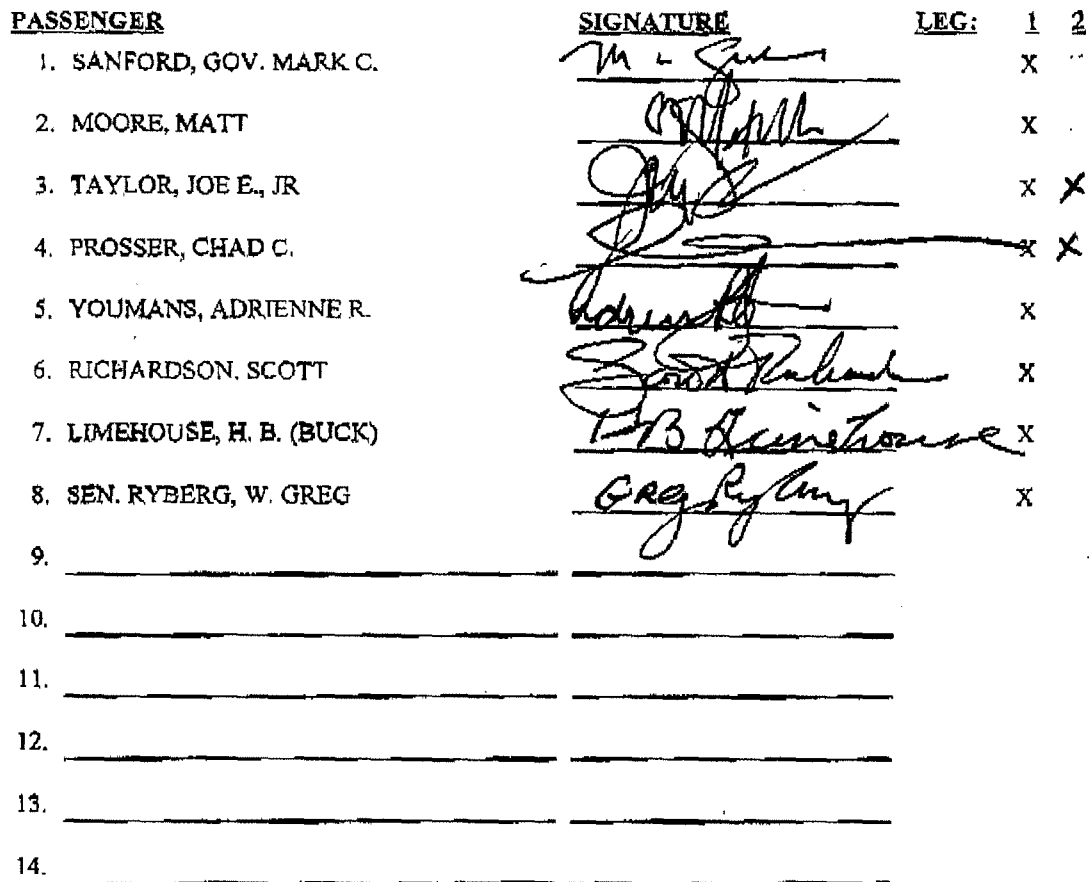 PASSENGER SIGNATURE LEG: 1 2
1. SANFORD, GOV. MARK C. X
2. MOORE, MATT X
3. TAYLOR, JOE E., JR X X
4. PROSSER, CHAD C. X X
5. YOUMANS, ADRIENNE R. X
6. RICHARDSON. SCOTT Scott Richards X
7. LIMEHOUSE, H. B. (BUCK) HB Limehouse X
8. SEN. RYBERG, W. GREG Greg Ryberg X
9.
10.
11.
12.
13.
14.